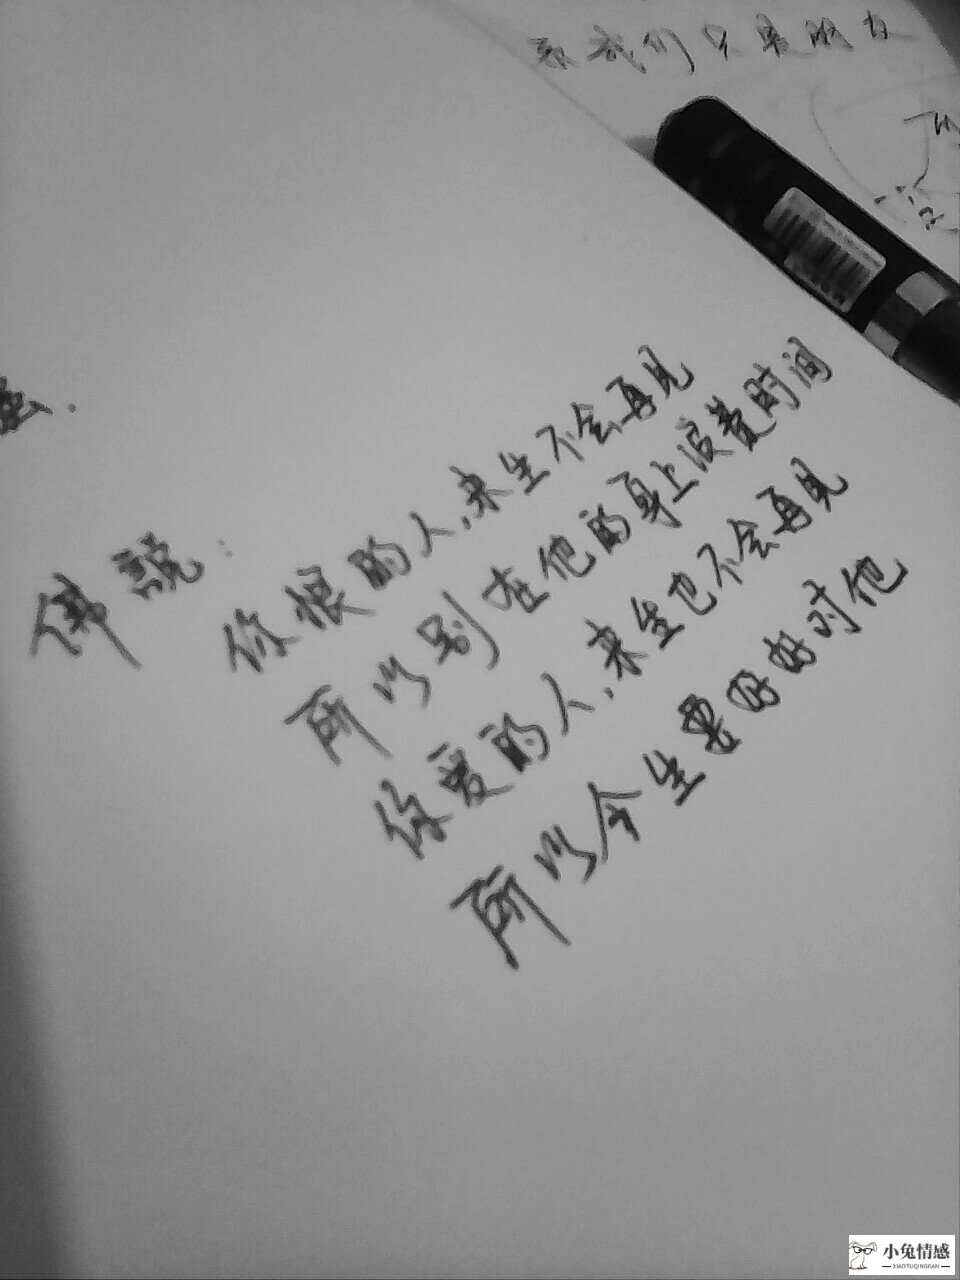 我们只是朋友
佛說：
你恨的人，来生不会再见
所以别在他的身上浪费时间
你爱的人，来生也不会再见
所以今生要好好对他
小兔情感
XIAOTUQINGGAN